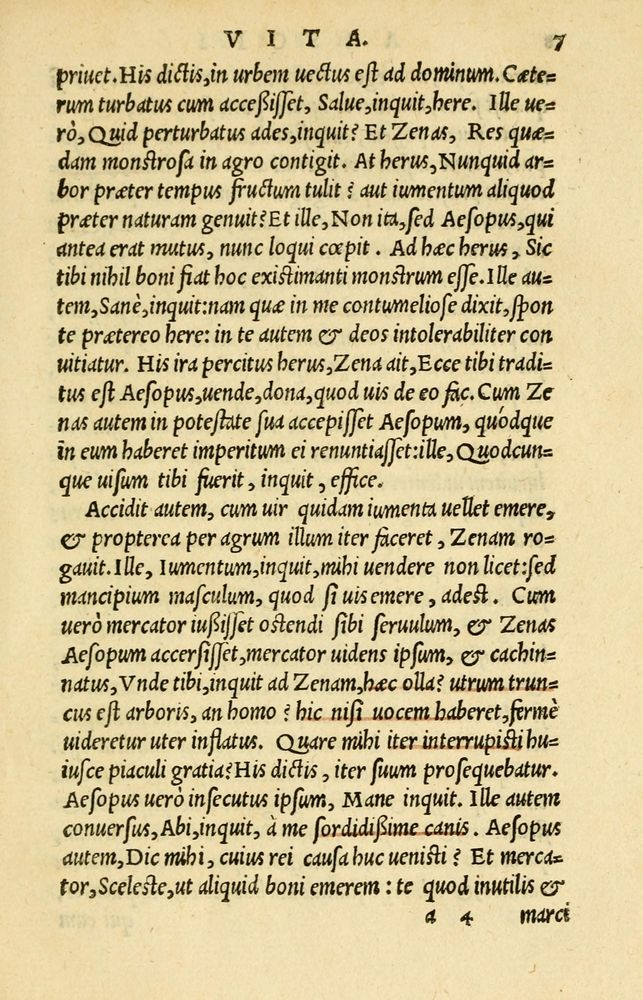 VITA. 7
priuet. His dictis, in urbem uectus est ad dominum. Cæte-
rum turbatus cum acceßisset, Salue, inquit, here. Ille ue-
rò, Quid perturbatus ades, inquit? Et Zenas, Res quæ-
dam monstrosa in agro contigit. At herus, Nunquid ar-
bor præter tempus fructum tulit? aut iumentum aliquod
præter naturam genuit? Et ille, Non ita, sed Aesopus, qui
antea erat mutus, nunc loqui cœpit. Ad hæc herus, Sic
tibi nihil boni fiat hoc existimanti monstrum esse. Ille au-
tem, Sanè, inquit: nam quæ in me contumeliose dixit, spon
te prætereo here: in te autem & deos intolerabiliter con
uitiatur. His ira percitus herus, Zena ait, Ecce tibi tradi-
tus est Aesopus, uende, dona, quod uis de eo fac. Cum Ze
nas autem in potestate sua accepisset Aesopum, quódque
in eum haberet imperitum ei renuntiasset: ille, Quodcun-
que uisum tibi fuerit, inquit, effice.
Accidit autem, cum uir quidam iumenta uellet emere,
& propterea per agrum illum iter faceret, Zenam ro-
gauit. Ille, Iumentum, inquit, mihi uendere non licet: sed
mancipium masculum, quod si uis emere, adest. Cum
uerò mercator iußisset ostendi sibi seruulum, & Zenas
Aesopum accersisset, mercator uidens ipsum, & cachin-
natus, Vnde tibi, inquit ad Zenam, hæc olla? utrum trun-
cus est arboris, an homo? hic nisi uocem haberet, fermè
uideretur uter inflatus. Quare mihi iter interrupisti hu-
iusce piaculi gratia? His dictis, iter suum prosequebatur.
Aesopus uerò insecutus ipsum, Mane inquit. Ille autem
conuersus, Abi, inquit, à me sordidißime canis. Aesopus
autem, Dic mihi, cuius rei causa huc uenisti? Et merca-
tor, Sceleste, ut aliquid boni emerem: te quod inutilis &
a 4 marci